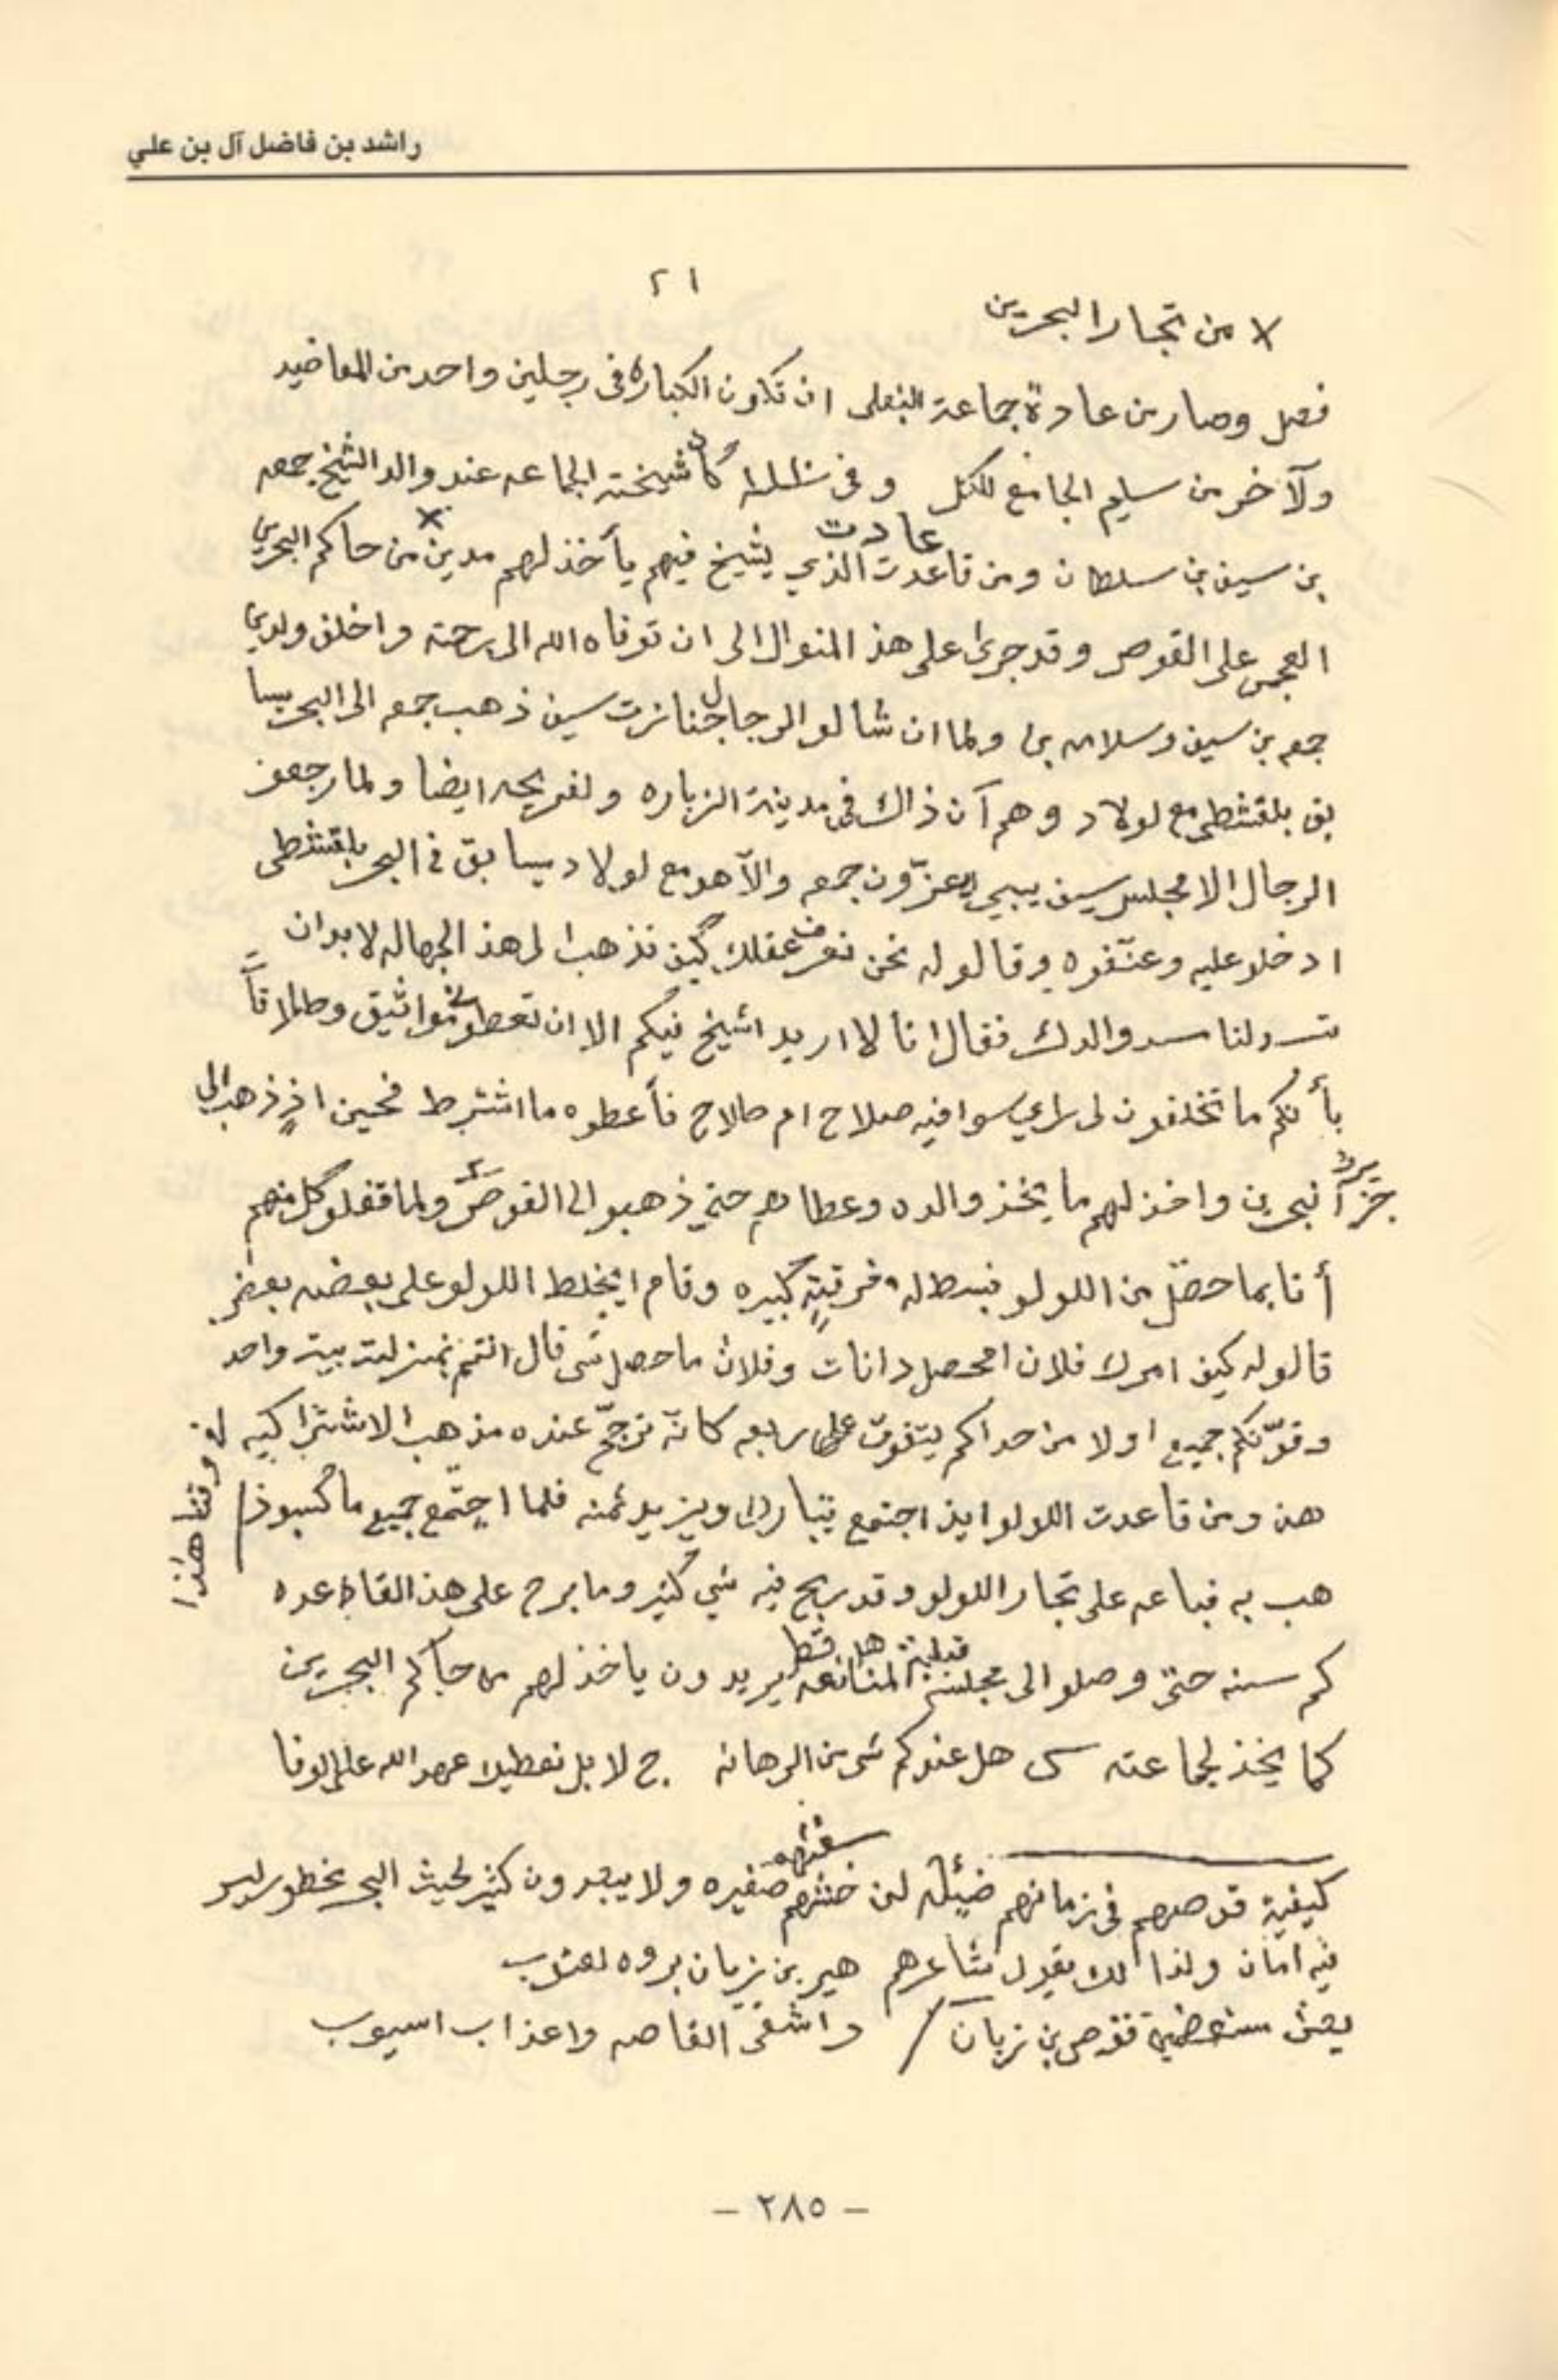 راشد بن فاضل آل بن علي
٢١
x من تجار البحرين
فصل وصار من عادة جماعة البنعلى ان تكون الكباره فى رجلين واحد من المعاضيد
ولآخر من سليم الجامع للكل وفى كان شيخته الجماعه عند والد الشيخ جمعه
بن سيف بن سلطان ومن قاعدت عادت الذي يشيخ فيهم يأخذ لهم مدين x من حاكم البحرين
العجمي على القوص وقد جرى على هذ المنوال الى ان توفاه الله الى رحمته واخلف ولدين
جمعه بن سيف وسلامه بن ولما ان شالو الرجال جنازت سيف ذهب جمعه الى البحر يسا
بق بلقشطى مع لولاد وهم آن ذاك فى مدينة الزباره ولفريحه ايضا ولما رجعو
الرجال الا مجلس سيف يبي يعزّون جمعه والآ هو مع لولاد يسابق فى البحر بلقشطى
ادخلو عليه وعنّفوه وقالو له نحن نعرف عقلك كيف تذهب الى هذ الجهاله لابد ان
تسد لنا سد والدك فقال انا لا اريد اشيخ فيكم الا ان تعطونى مواثيق وطلاقاً
بأنكم ما تخلفون لى راي سوا فيه صلاح ام طلاح فأعطوه ما اشترط فحين اذٍ ذهب الى
جزيرة البحرين واخذ لهم ما يخذ والده وعطاهم حتي ذهبو الى القوص ولما قفلو كل منهم
أتا بما حصّل من اللولو فبسط له خرقتٍ كبيره وقام ايخلط اللولو على بعضه بعض
قالو له كيف امرك فلان امحصل دانات وفلان ما حصل شى قال انتم بمنزلت بيت واحد
وقوّتكم جميع اولا من حداكم يتفوت على ربعه كانّه ترجّح عنده مذهب الاشتراكيه
فى وقتنا هذا
هذ ومن قاعدت اللولو ايذ اجتمع يتبارك ويزيد ثمنه فلما اجتمع جميع ما كسبو ذ
هب به فباعه على تجار اللولو وقد ربح فيه شي كثير وما برح على هذ القاعده
كم سنه حتى وصلو الى مجلسه قبلية المنانعه هل قطر يريدون ياخذ لهم من حاكم البحرين
كما يخذ لجماعته س هل عندكم شى من الرهانه ج لا بل نعطيك عهد الله على الوفا
كيفية قوصهم فى زمانهم ضئيله لن خشبهم سفنهم صغيره ولا يبعدون كثير لحيث البحر خطر ليس
فيه امان ولذالك يقول شاعرهم هير بن زيان بروه لعتوب
قوص بن زيان / واشقى القاصه واعذاب اسيوب
– ٢٨٥ –